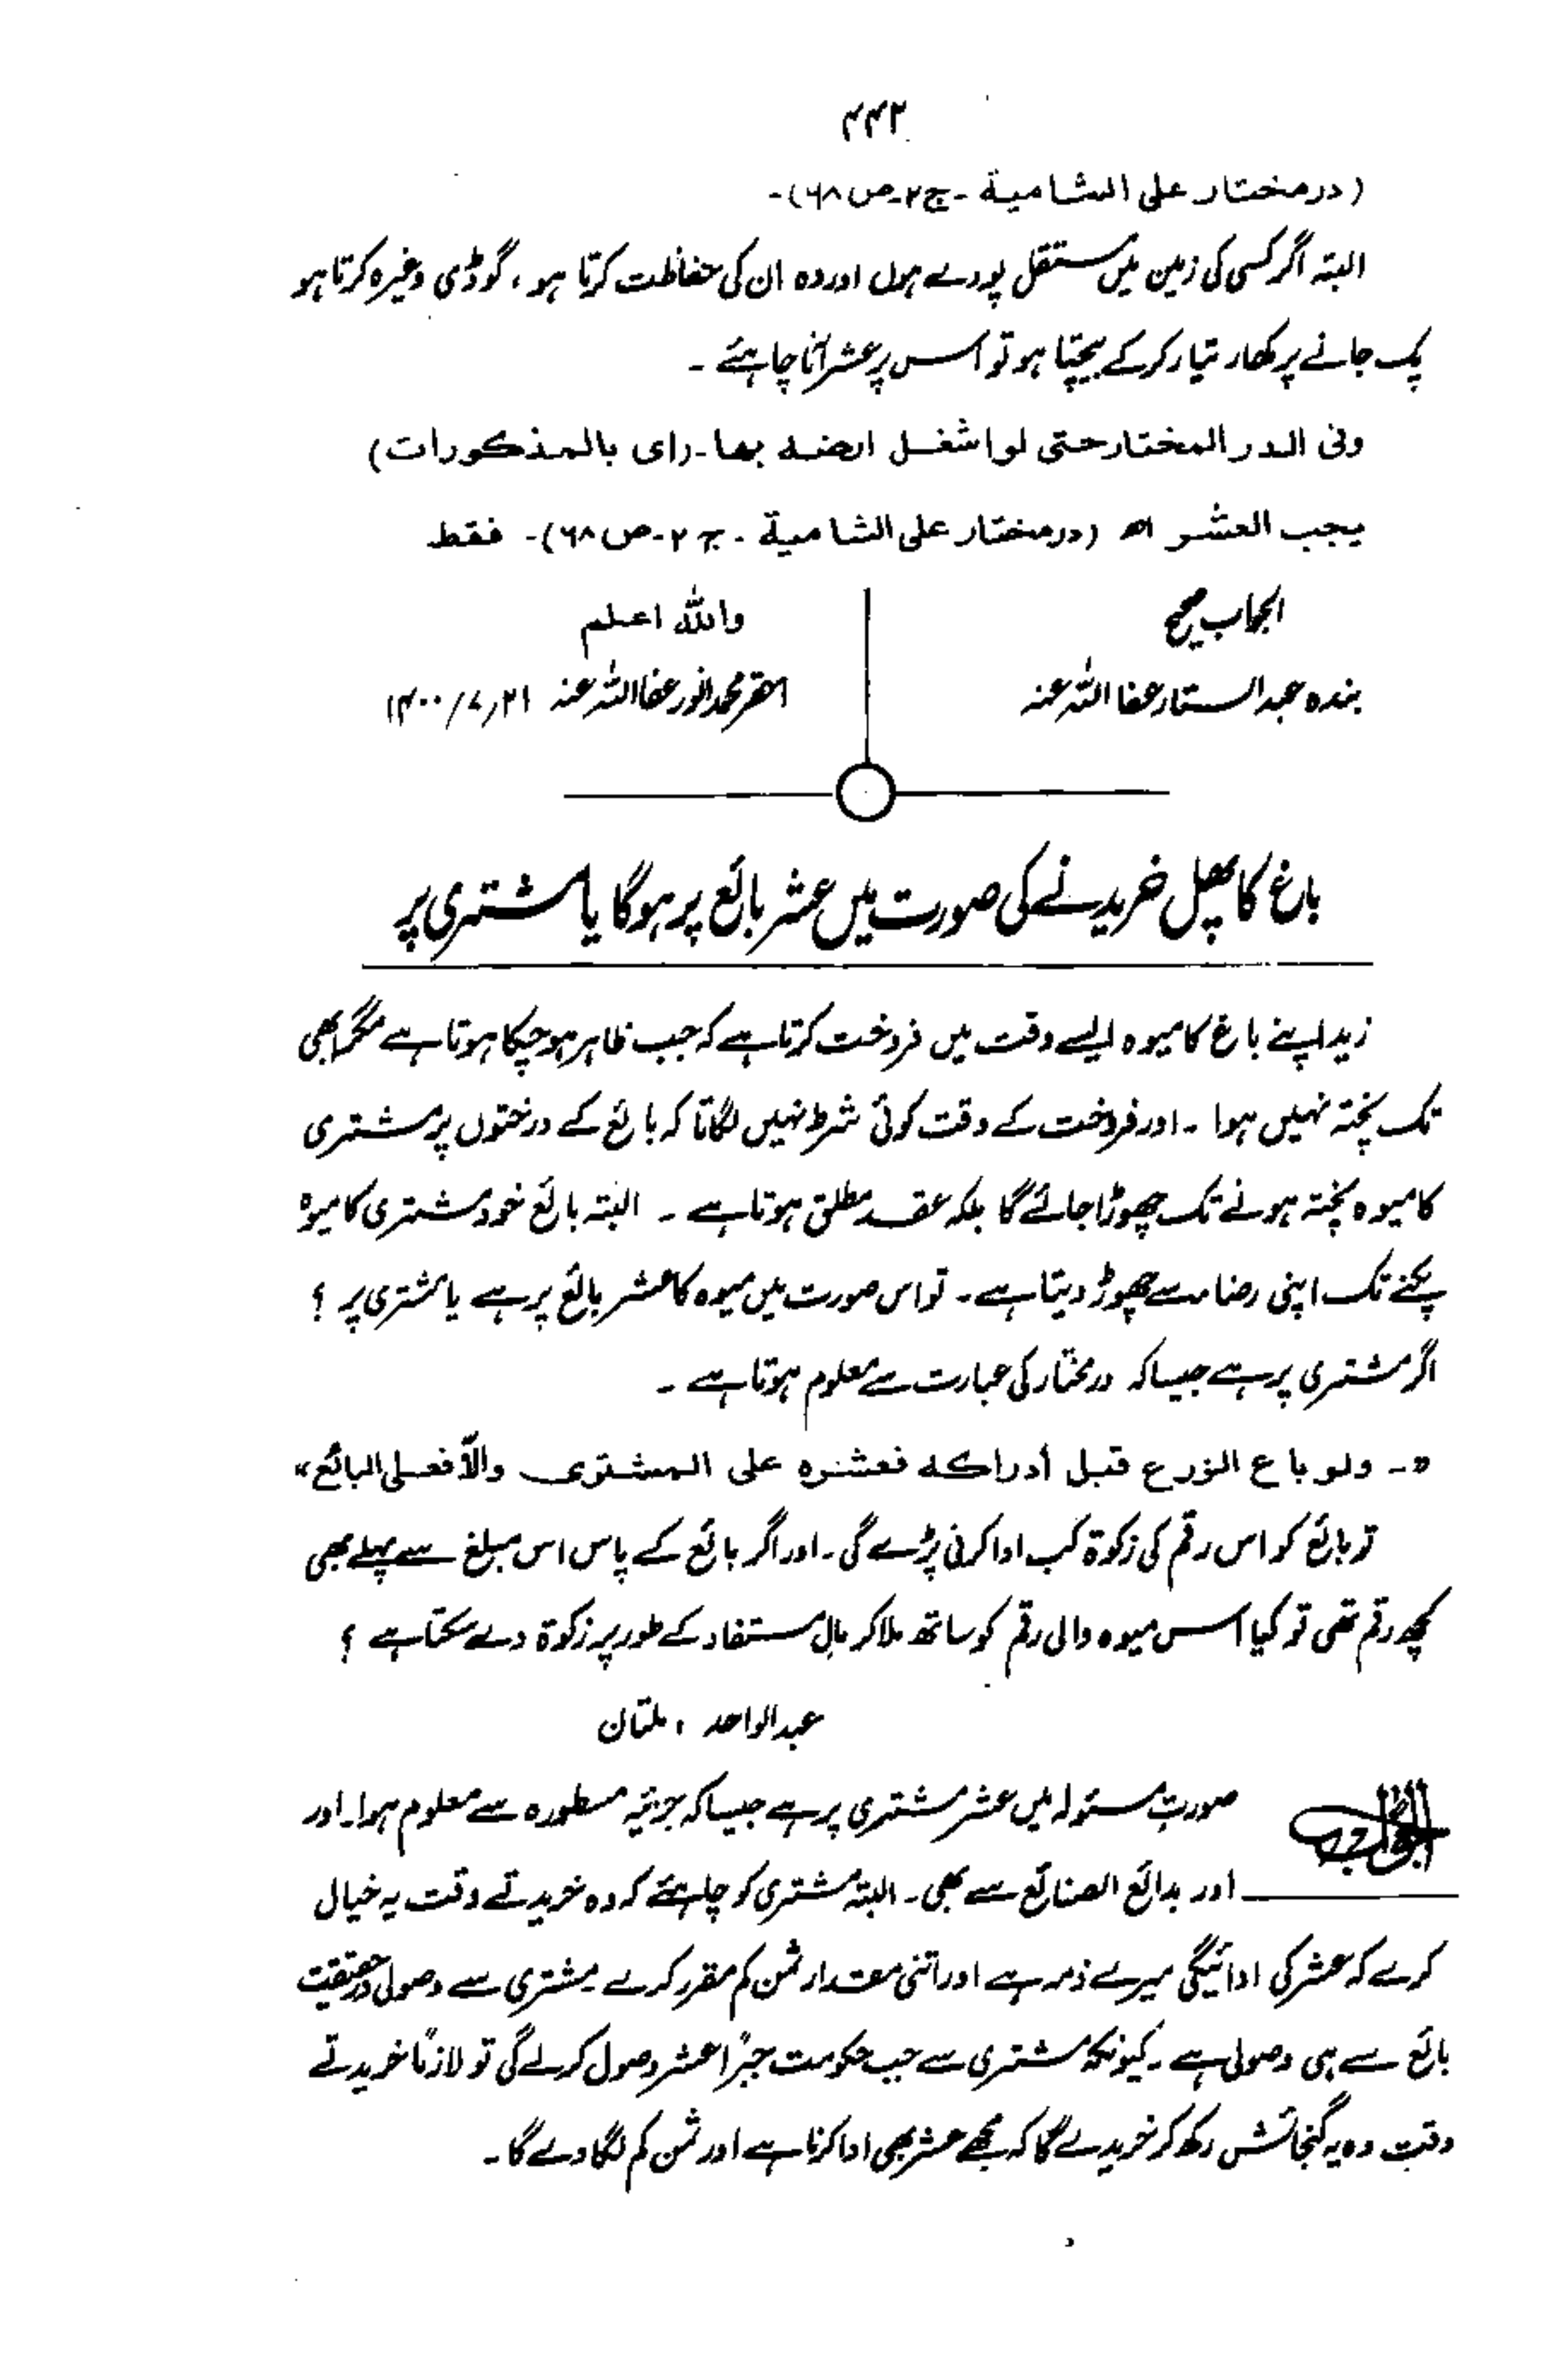 ۴۴۲
(درمختار علی الشامیة ۔ ج۲۔ص۶۸)۔
البتہ اگر کسی کی زمین میں مستقل پودے ہوں اور وہ ان کی حفاظت کرتا ہو، گوڈی وغیرہ کرتا ہو
پک جانے پر کھار تیار کرکے بیچتا ہو تو اس پر عشر آنا چاہئے ۔
وفی الدر المختار حتی لو اشغل ارضه بها۔ (ای بالمذکورات)
یجب العشر اھ (درمختار علی الشامیة ۔ ج ۲۔ص۶۸)۔ فقط
واللہ اعلم
احقر محمد انور عفا اللہ عنہ ۲۱/۷/۱۴۰۰
الجواب صحیح
بندہ عبد الستار عفا اللہ عنہ
باغ کا پھل خریدنے کی صورت میں عشر بائع پر ہوگا یا مشتری پر
زید اپنے باغ کا میوہ ایسے وقت میں فروخت کرتا ہے کہ جب ظاہر ہوچکا ہوتا ہے مگر ابھی
تک پختہ نہیں ہوا ۔ اور فروخت کے وقت کوئی شرط نہیں لگاتا کہ بائع کے درختوں پر مشتری
کا میوہ پختہ ہونے تک چھوڑا جائے گا بلکہ عقد مطلق ہوتا ہے ۔ البتہ بائع خود مشتری کا میوہ
پکنے تک اپنی رضا سے چھوڑ دیتا ہے ۔ تو اس صورت میں میوہ کا عشر بائع پر ہے یا مشتری پر ؟
اگر مشتری پر ہے جیسا کہ درمختار کی عبارت سے معلوم ہوتا ہے ۔
”۔ ولو باع الزرع قبل أدراکه فعشره علی المشتری والّا فعلی البائع“
تو بائع کو اس رقم کی زکوٰة کب ادا کرنی پڑے گی ۔ اور اگر بائع کے پاس اس مبلغ سے پہلے بھی
کچھ رقم تھی تو کیا اس میوہ والی رقم کو ساتھ ملا کر مالِ مستفاد کے طور پر زکوٰة دے سکتا ہے ؟
عبد الواحد ، ملتان
الجواب صورتِ مسئولہ میں عشر مشتری پر ہے جیسا کہ جزئیہ مسطورہ سے معلوم ہوا۔ اور
اور بدائع الصنائع سے بھی ۔ البتہ مشتری کو چاہئے کہ وہ خریدتے وقت یہ خیال
کرے کہ عشر کی ادائیگی میرے ذمہ ہے اور اتنی مقدار ثمن کم مقرر کرے ۔ مشتری سے وصولی درحقیقت
بائع سے ہی وصولی ہے ۔ کیونکہ مشتری سے جب حکومت جبرًا عشر وصول کرلے گی تو لازمًا خریدتے
وقت وہ یہ گنجائش رکھ کر خریدے گا کہ مجھے عشر بھی ادا کرنا ہے اور ثمن کم لگا دے گا ۔